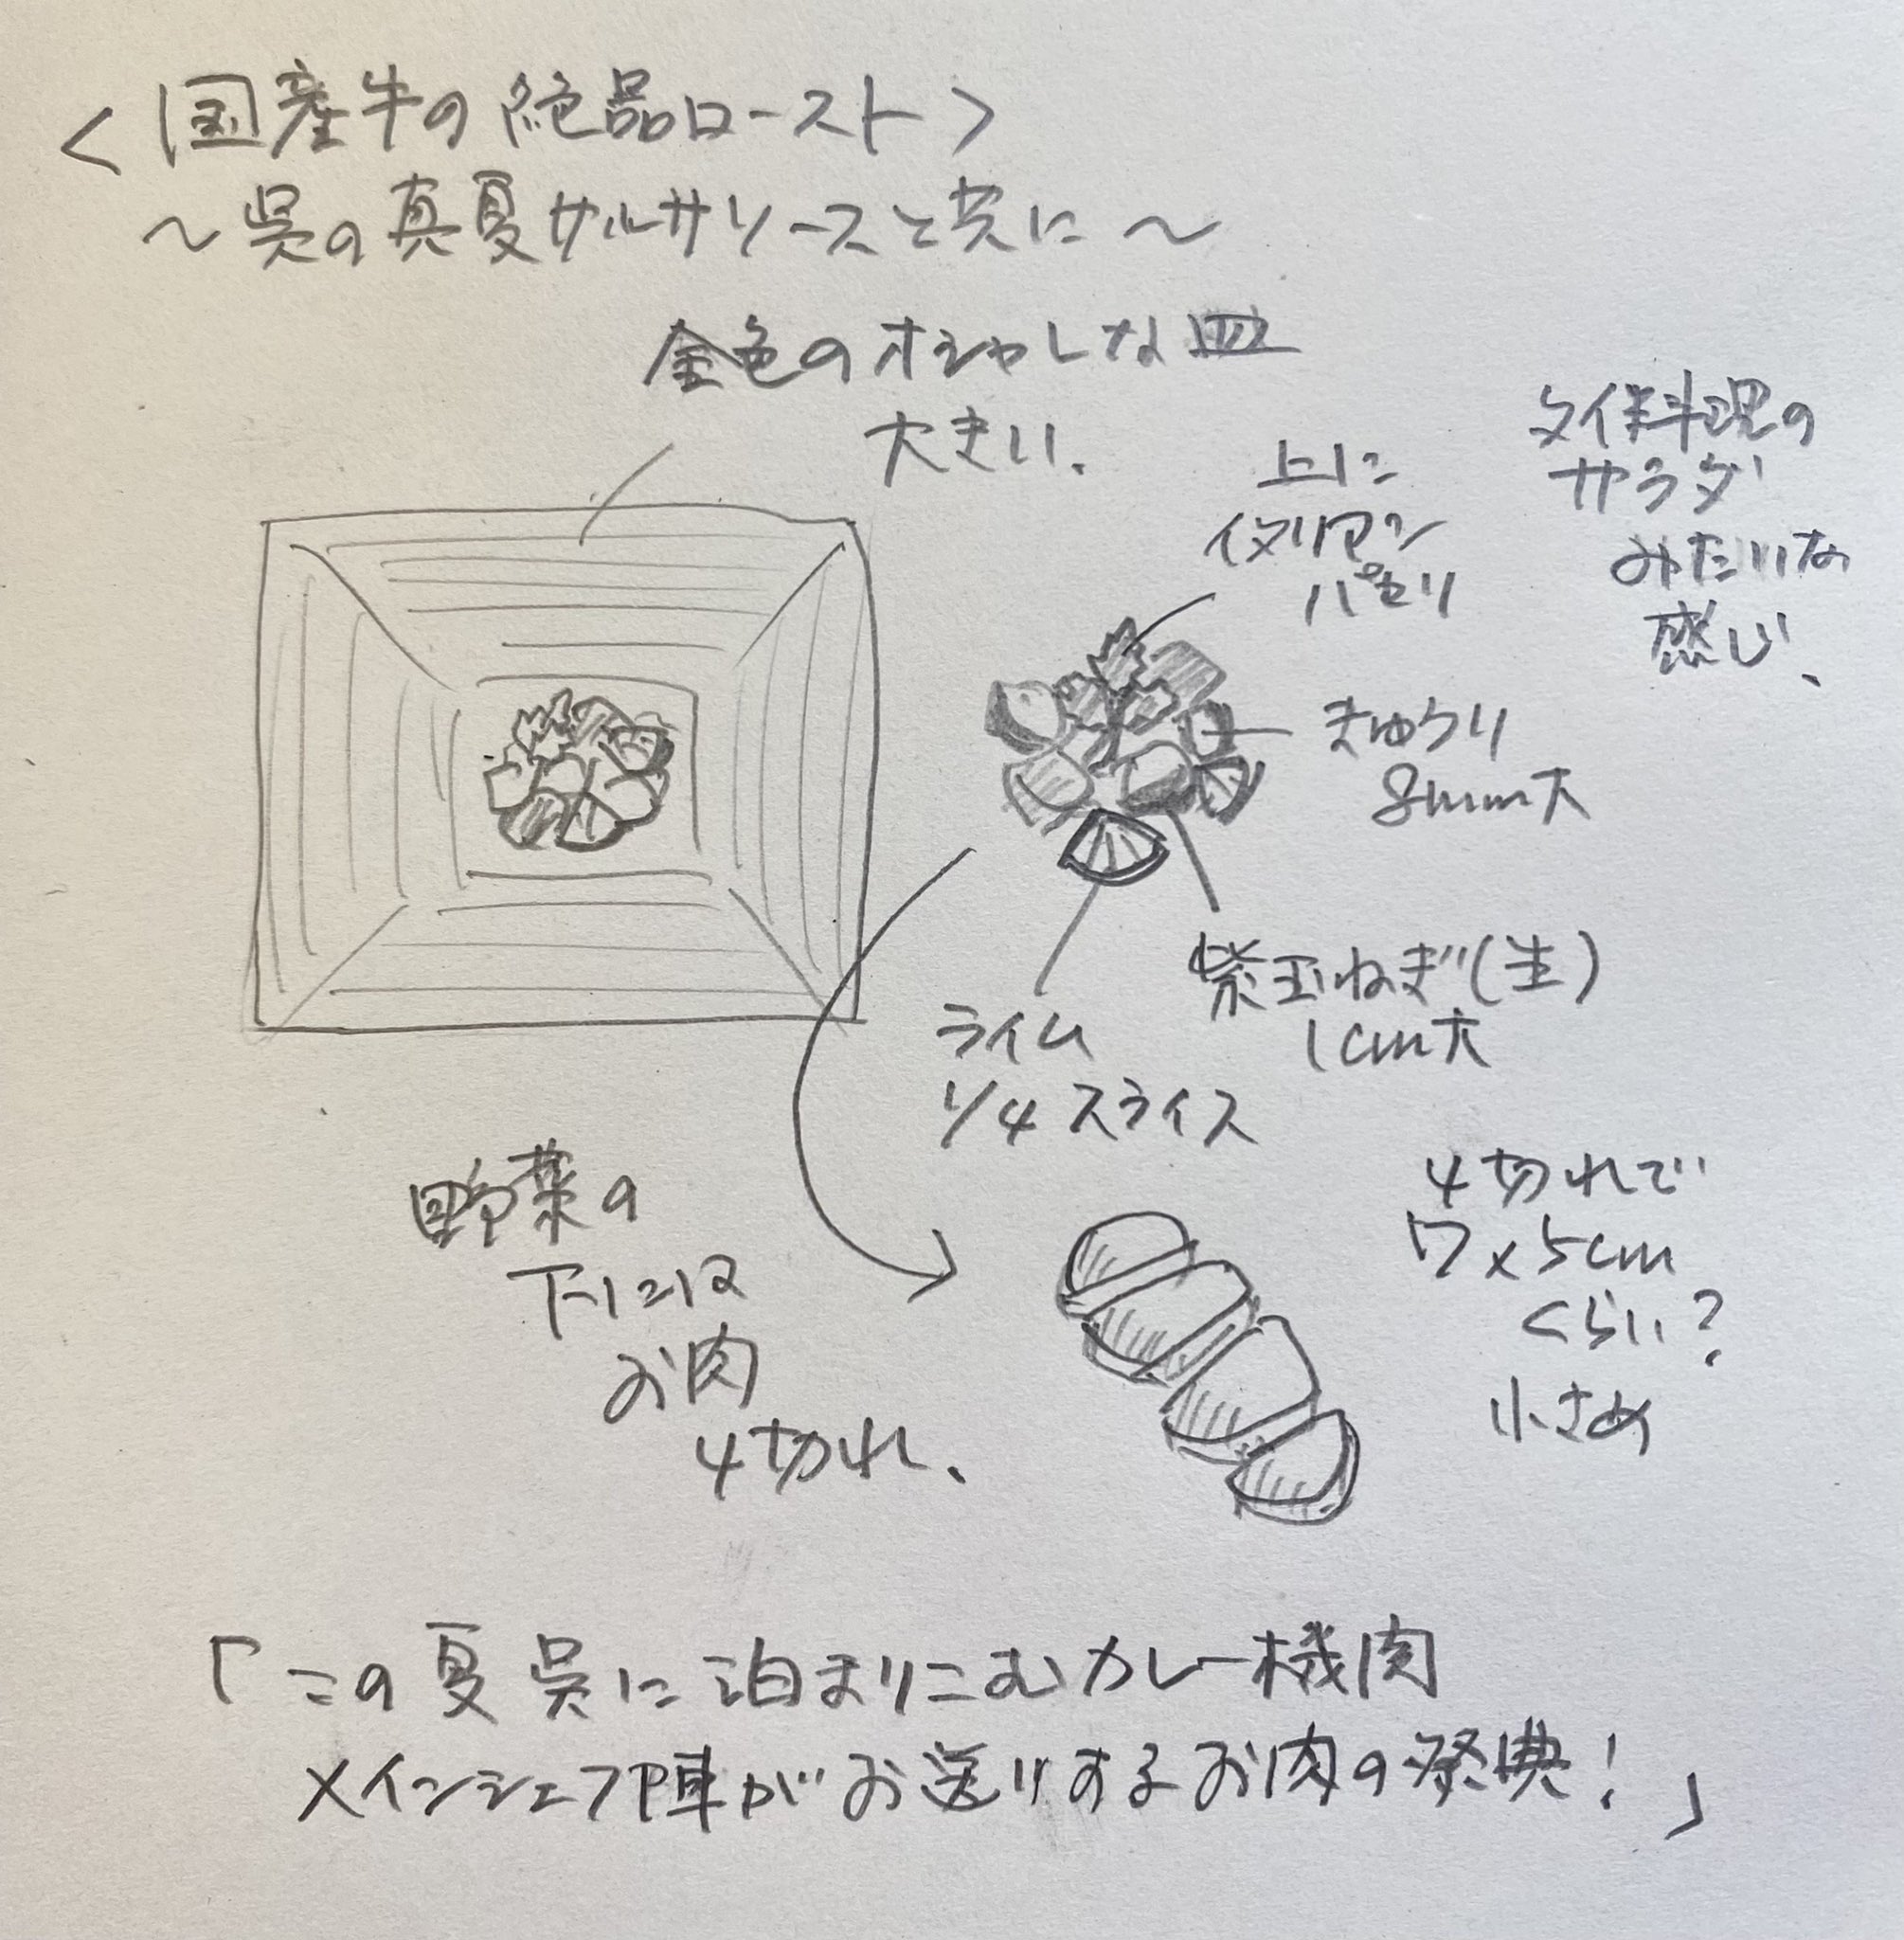 ＜国産牛の絶品ロースト＞
〜呉の真夏サルサソースと共に〜
金色のオシャレな皿
大きい、
タイ料理の
サラダ
みたいな
感じ、
上に
イタリアン
パセリ
きゅうり
8mm大
紫玉ねぎ(生)
1cm大
ライム
1/4スライス
野菜の
下には
お肉
4切れ、
4切れで
7×5cm
くらい？
小さめ
「この夏呉に泊まりこむカレー機関
メインシェフ陣がお送りするお肉の祭典！」